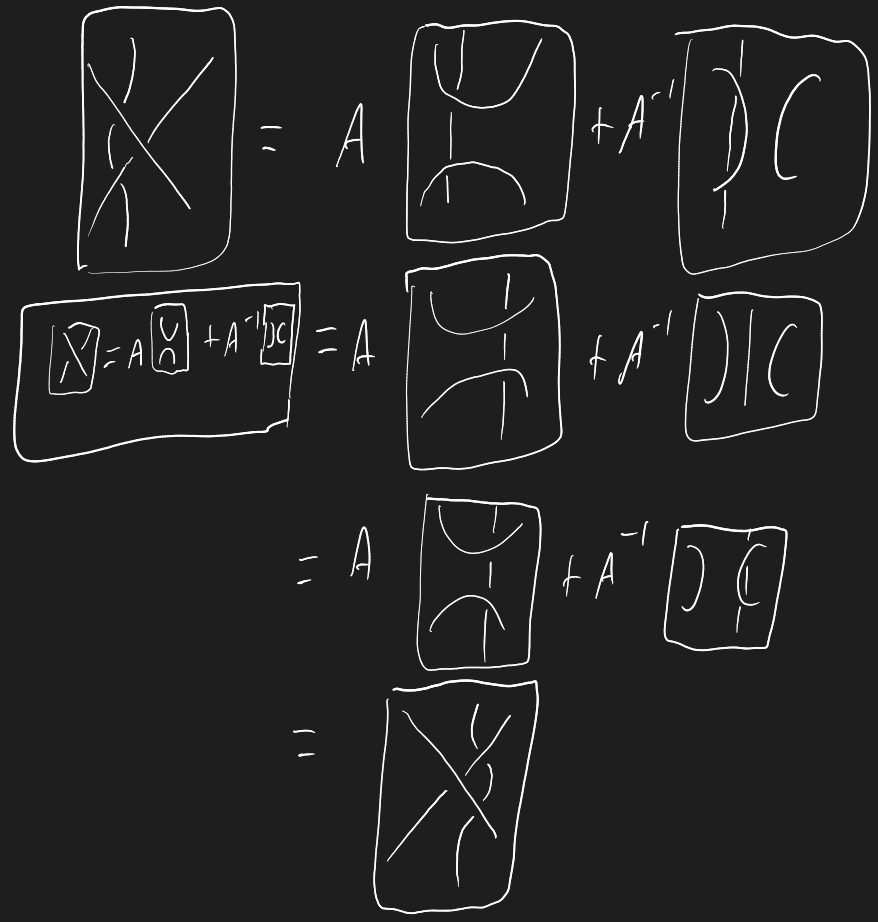 = A + A⁻¹
= A + A⁻¹ = A + A⁻¹
= A + A⁻¹
=